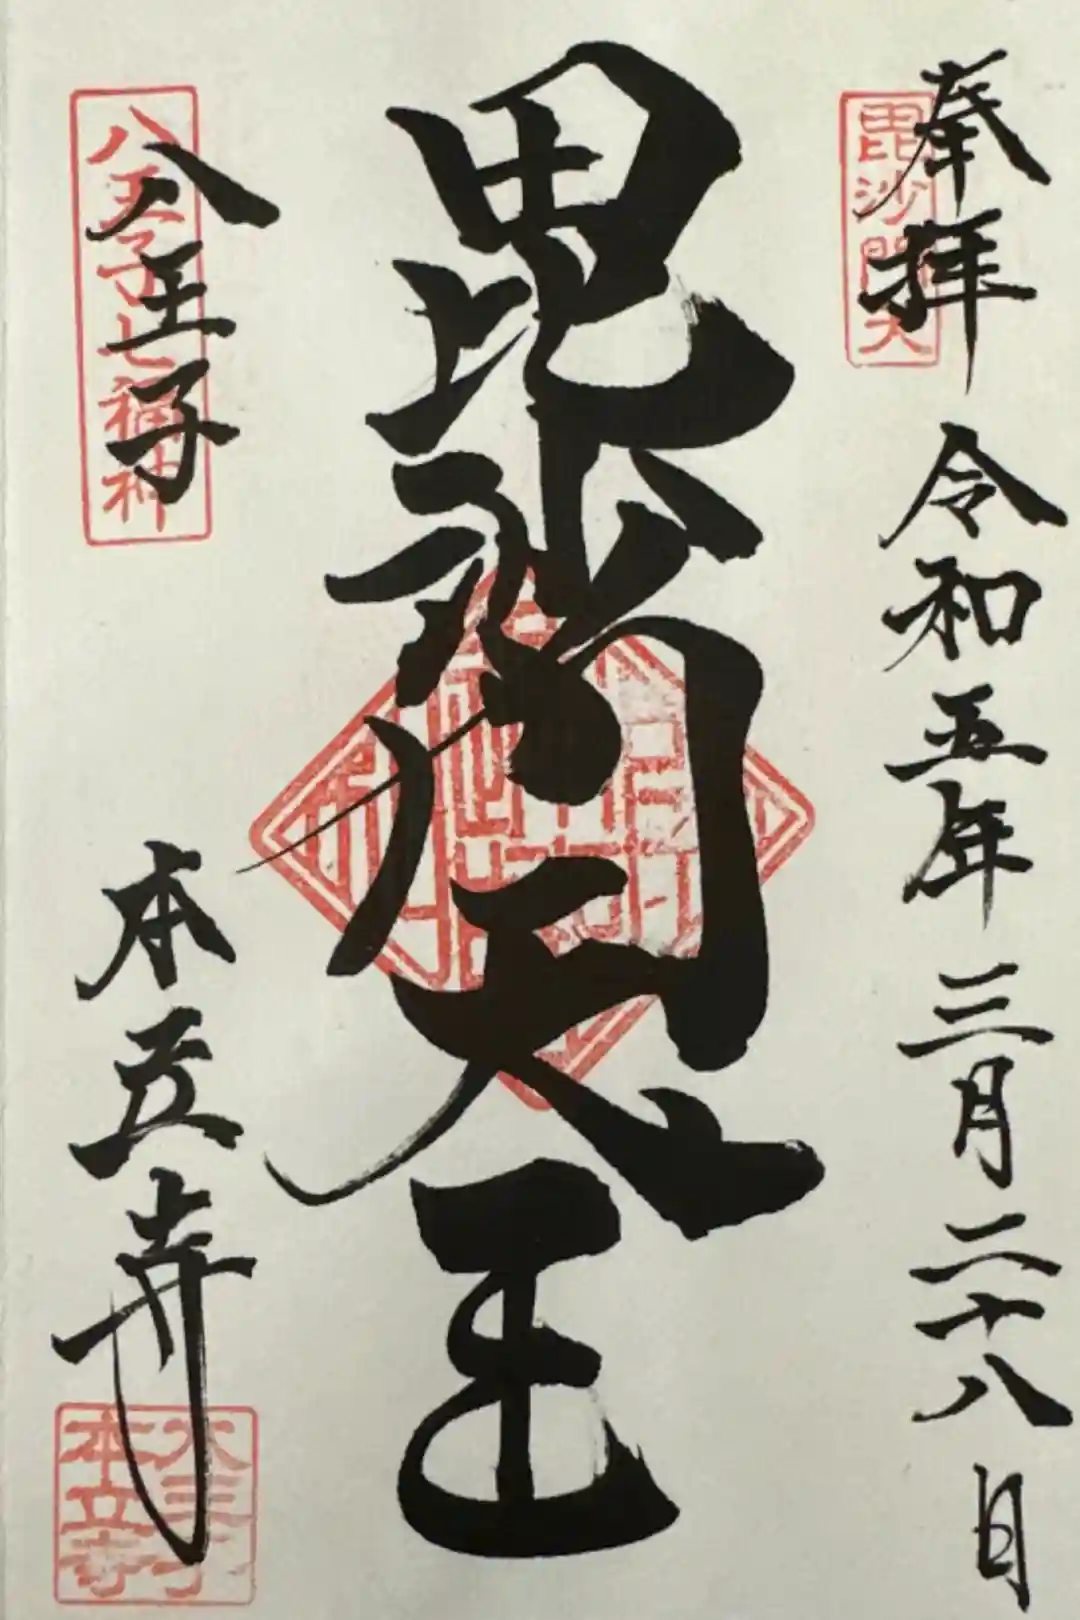 奉拝 令和五年三月二十八日
毘沙門天
毘沙門天王
八王子
八王子七福神
本立寺
八王子
本立寺